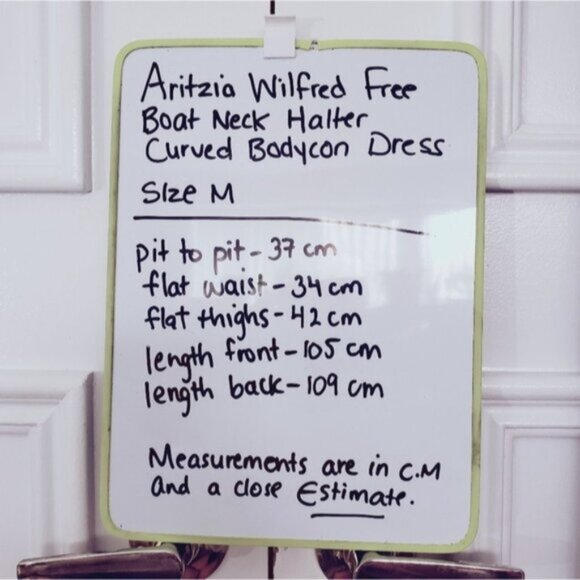 Aritzia Wilfred Free
Boat Neck Halter
Curved Bodycon Dress
Size M
pit to pit - 37 cm
flat waist - 34 cm
flat thighs - 42 cm
length front - 105 cm
length back - 109 cm
Measurements are in C.M
and a close Estimate.